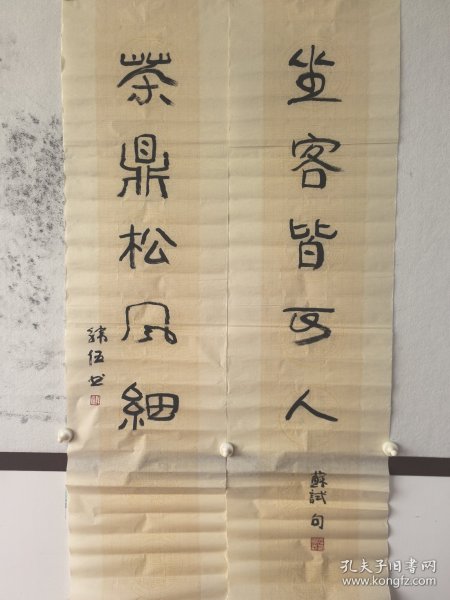 坐客皆可人
蘇試句
茶鼎松風細
緯伍书
孔夫子旧书网
www.kongfz.com